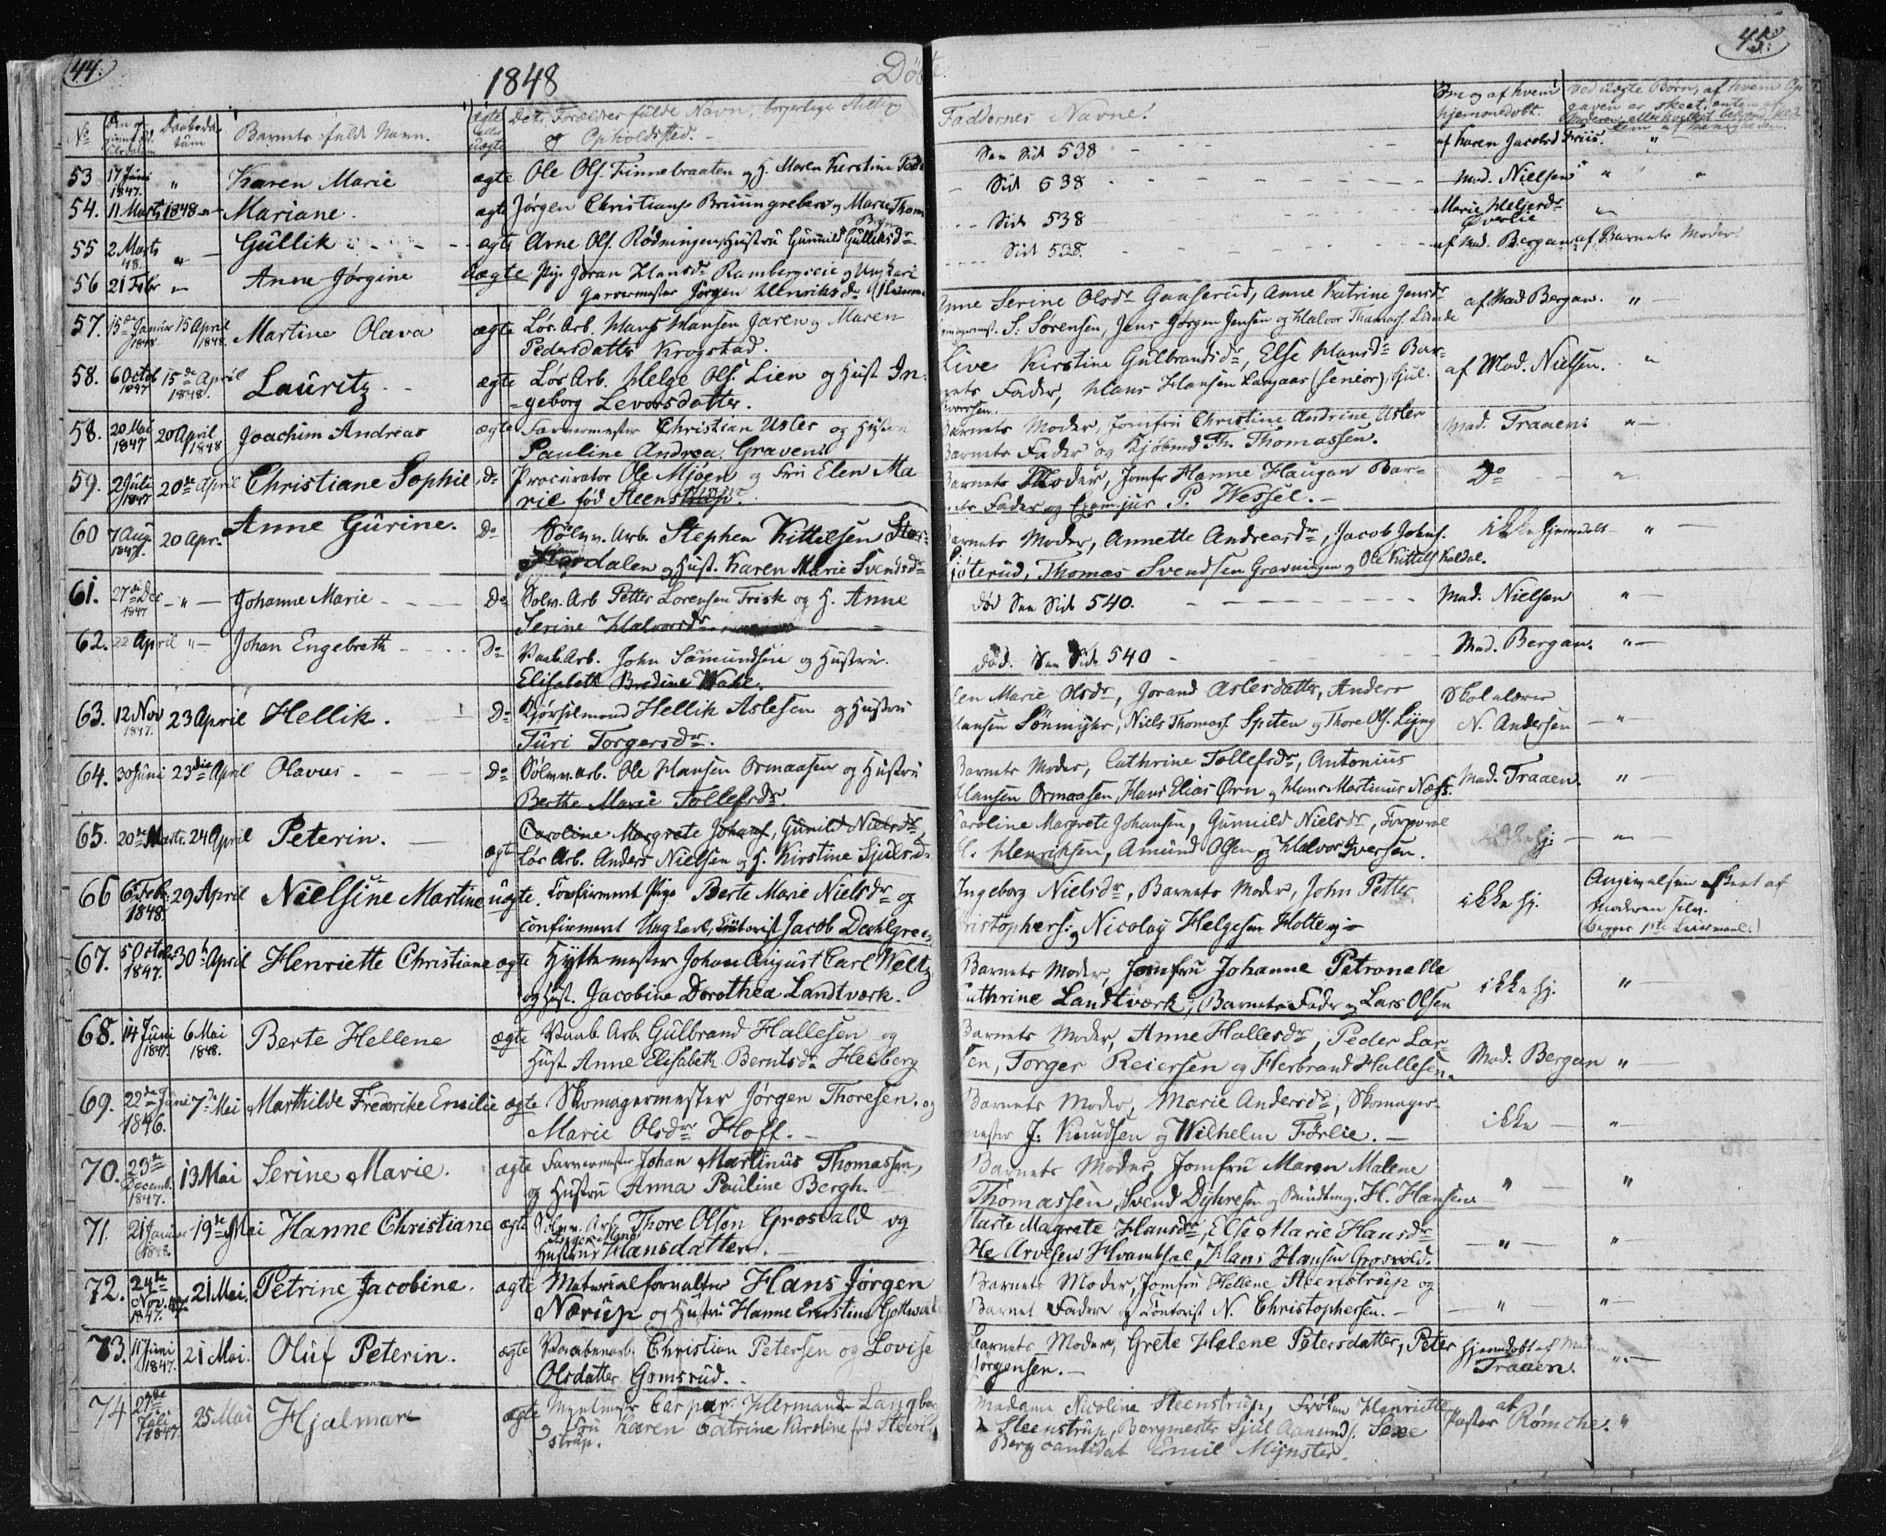 44.
1848
Døbt.
45.
No
Barnets fulde Navn.
ægte eller uægte
Dets Forældres fulde Navn, borgerlige Stilling
og Opholdsted.
Faddernes Navne.
Om og af hvem
hjemmedøbt.
53 17 Juni 1847. " Karen Marie ægte Ole Ols. Finnebraaten og H. Maren Kirstine See Sid 538 af Karen Jacobsd Friis. "
54. 11 Marts 1848 Mariane. ægte Jørgen Christians. og Marie Thom Sid 538 Mad. Nielsen " "
55 2 Marts 48. " Gullik ægte Arne Ols. Rødningen Hustru Gunnild Gulliksdr Sid 538 Marie Helgesdr Øverlie "
56 21 Febr " Anne Jørgine uægte Pige Joran Hansdr Rambergseie og Ungkarl Sid 538. af Mad. Bergan af Barnets Moder
Garvermester Jørgen Henriksdr
57. 15de Januar 1848 15 April 1848. Martine Olava ægte Løs Arb. Hans Hansen Jaren og Maren
Pedersdatter Krogstad.
Anne Serine Olsdr Gaaserud, Anne Katrine Jensdr af Mad Bergan. "
S. Sørensen, Jens Jørgen Jensen og Halvor Thomas. Lande
58. 6 Octob 1847 15de April 1848. Lauritz ægte Løs Arb. Helge Ols. Lien og Hust. In-
geborg Levorsdatter.
Live Kirstine Gulbrandsdr, Else Hansdr Bar-
nets Fader, Hans Hansen Langaar (senior), Gul. af Mad. Nielsen. "
58. 20 Mai 1847 20 April 1848 Joachim Andreas ægte Farvermester Christian Usler og Hustru
Pauline Andrea Gravens
Barnets Moder, Jomfru Christine Andrine Usler Mad. Traaen. "
Barnets Fader og Kjøbmd Th. Thomassen.
59. 2 Juli 1847 20de April Christiane Sophie Do Procurator Ole Mjøen og Fru Elen Ma
rie fød Steenstrup.
Barnets Moder, Jomfr Hanne Haugan Bar- Do "
nets Fader og Exam. jur P. Wessel.
60 7 Aug 1847. 20 Apr. Anne Gurine. Do Sølvv. Arb. Stephen Kittelsen
dalen og Hust. Karen Marie Svendsdr
Barnets Moder, Annette Andreasdr, Jacob Johns. ikke hjemmedøbt "
Thomas Svendsen Gravningen og Ole Kittels Kaldal.
61. 27de Dec 1847 " Johanne Marie Do Sølvv. Arb Petter Lorensen Frisk og H. Anne
Serine Halvorsdr
død See Side 540. Mad. Nielsen "
62. 22 April " Johan Engebreth Do Vaab. Arb. John Samundsen og Hustru
Elisabeth Bredine Wahl.
død. See Side 540 Mad. Bergan. "
63. 12 Nov 1847. 23 April Hellik. Do Hellik Aslesen og Hustru
Turi Torgersdr.
Elen Marie Olsdr, Jorand Aslesdatter, Anders Skolelærer
Hansen Sønmyhr, Niels Thomas. Spiten og Thore Ols. N. Andersen "
64. 30 Juni 23die April Olavus Do Sølvv. arb. Ole Hansen Ormaasen og Hustru
Berthe Marie Tollefsdr.
Barnets Moder, Cathrine Tollefsdr, Antonius Mad. Traaen. "
Hansen Ormaasen, Hans Elias Ørn og Hans Martinus Næss.
65. 20de Marts. 24 April Peterin. ægte Caroline Margrete Johans, Gunild Nielsdr
Løs Arb. Anders Nielsen og H. Kirstine Sjulsdr.
Caroline Margrete Johansen, Gunnild Nielsdr, Corporal
Henriksen, Amund Olsen og Halvor Iversen. ikke hj. "
66 6 Feb. 1848. 29 April Nielsine Martine uægte. Confirmert Pige Berte Marie Nielsdr og
confirmert Ungkarl, Contorist Jacob Dahlgreen
Ingeborg Nielsdr, Barnets Moder, John Petter ikke hj. Angivelsen er skeet af
Christophers. og Nicolay Helgesen Holtens Moderen selv.
(Begges 1ste Leiermaal.)
67. 5 Octob 1847. 30te April Henriette Christiane ægte Hyttemester Johan August Carl Weltz
og Hust. Jacobine Dorothea Landtværk.
Barnets Moder, Jomfru Johanne Petronelle ikke hj. "
Cathrine Landtværk, Barnets Fader og Lars Olsen
68. 14 Juni 1847. 6 Mai 1848. Berte Hellene ægte Vaab. Arb. Gulbrand Hallesen og
Hust. Anne Elisabeth Berntsdr Heeberg
Barnets Moder, Anne Hallesdr, Peder Lar-
sen, Torger Reiersen og Herbrand Hallesen. Mad. Bergan "
69. 22de Juni 1846. 7de Mai Marthilde Frederike Emilie ægte Skomagermester Jørgen Thoresen og
Marie Olsdr Hoff.
Barnets Moder, Marie Andersdr, Skomager- ikke "
mester J. Knudsen og Wilhelm Førlie.
70. 23de Decemb. 1847. 13 Mai Serine Marie. ægte Farvermester Johan Martinus Thomassen
og Hustru Anna Pauline Bergh.
Barnets Moder, Jomfru Maren Malene " "
Thomassen, Svend Dyhresen og Bundtmg. H. Hansen
71. 21 Januar 1848 19de Mai Hanne Christiane ægte Sølvv. Arb. Thore Olsen Grosvald og
Hustru Hansdatter.
Marte Magrete Hansdr, Else Marie Hansdr " "
Ole Arvesen Kvambsel, Hans Hansen Grosvold.
72. 24de Nov. 1847. 21 Mai. Petrine Jacobine. ægte Materialforvalter Hans Jørgen
Nærup og Hustru Hanne Ernstine Gottwald
Barnets Moder, Jomfru Hellene Steenstrup og " "
Barnets Fader og Contorist N. Christophersen.
73. 11 Juni 1847. 21 Mai. Oluf Peterin. ægte Vaabenarb. Christian Petersen og Lovise
Olsdatter Gomsrud.
Barnets Moder, Grete Helene Petersdatter, Peter hjemdøbt af Madam
Jørgensen. Traaen. "
74 27de Juli 1847 25 Mai Hjalmar ægte Casper Hermand Langberg
og Fru Karen Catrine Kirstine fød Steen-
strup.
Madame Nicoline Steenstrup, Frøken Henriette af
Steenstrup, Bergmester Sjul Aamunds. Sexe Pastor Rømche. "
Bergcandidat Emil Mynster.